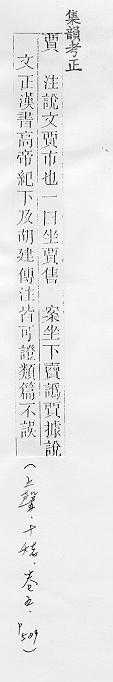 集韻考正
賈 注說文賈市也一曰坐賣售 案坐下賣譌賈據說
文正漢書高帝紀下及胡建傳注皆可證類篇不誤
(上聲.十姥.卷五.P509)